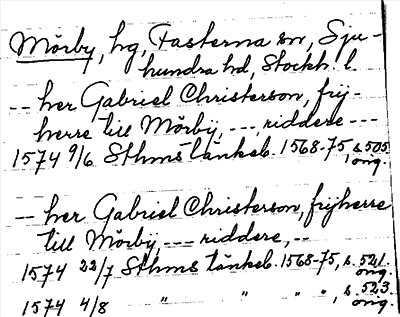 Mörby, hg, Fasterna sn, Sju-
hundra hd, Stockh. l.
-- her Gabriel Christerson, frij-
herre till Mörbÿ, ---, riddere ---
1574 9/6 Sthms tänkeb. 1568-75, s. 505
orig.
-- her Gabriel Christerson, frijherre
till Mörbÿ, --- riddere, --
1574 22/7 Sthms tänkeb. 1568-75, s. 521.
orig.
1574 4/8 " " " ", s. 523.
orig.